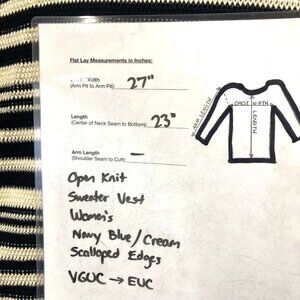 Flat Lay Measurements in Inches:
Width
27"
(Arm Pit to Arm Pit)
Length
23"
(Center of Neck Seam to Bottom)
Arm Length
–
(Shoulder Seam to Cuff)
ARM LENGTH
CHEST WIDTH
LENGTH
Open Knit
Sweater Vest
Women's
Navy Blue/Cream
Scalloped Edges
VGUC → EUC